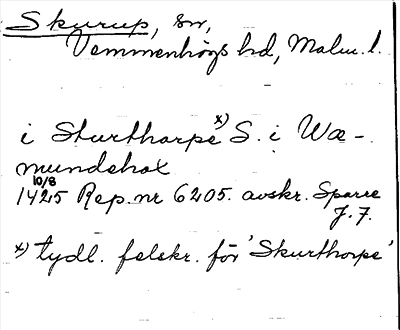 Skurup, sn,
Vemmenhögs hd, Malm. l.
i Sturthorpe x) S. i Wæ-
mundshax
10/8
1425 Rep. nr 6205. avskr. Sparre
J. F.
x) tydl. felskr. för 'Skurthorpe'